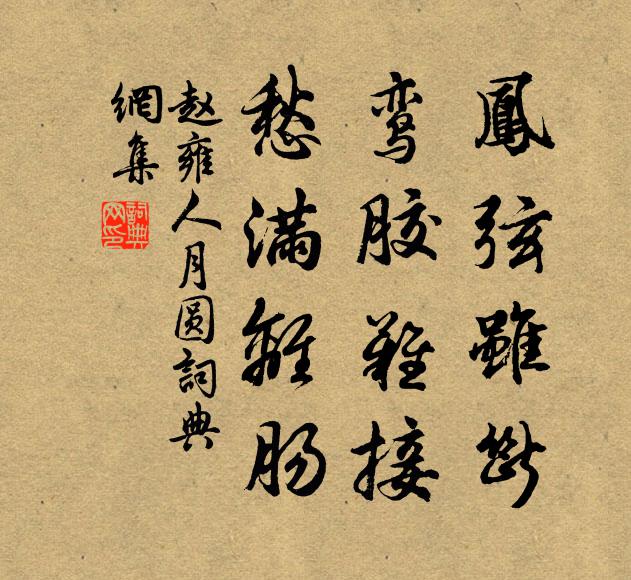 鳳弦雖断
鸾胶难接
愁滿離肠
赵雍人月圆詞典
網集
詞典
网印